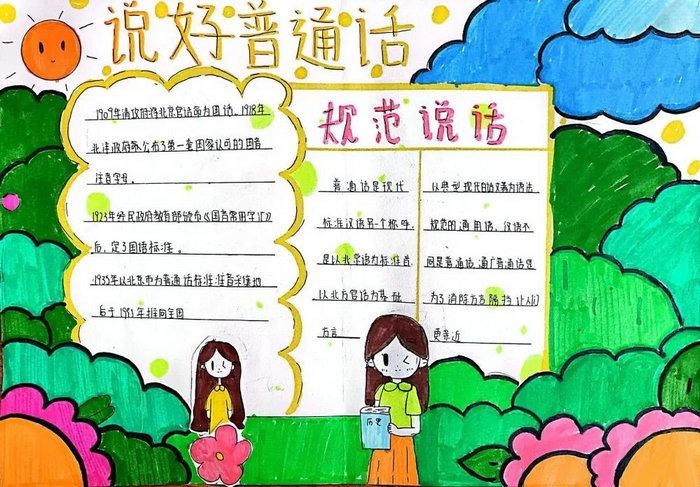 说好普通话
1909年清政府将北京官话命为国语，1918年
北洋政府公布了第一套国家认可的国音
注音字母。
1923年经民政府教育部颁布《国音常用字汇》
后，定了国语标准。
1955年以北京市为普通话标准音采集地
后于1951年推向全国
规范说话
普通话是现代
标准汉语另一个称呼，
是以北京语为标准音
以北方官话为基础
方言
以典型现代白话文为语法
规范的通用语，汉语不
同是普通话，推广普通话是
为了消除方言隔挡让人们
更亲近
历史